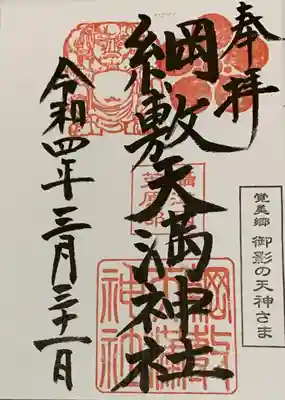 奉拝
綱敷天満神社
令和四年三月三十一日
覚美郷 御影の天神さま
綱敷
天満
神社